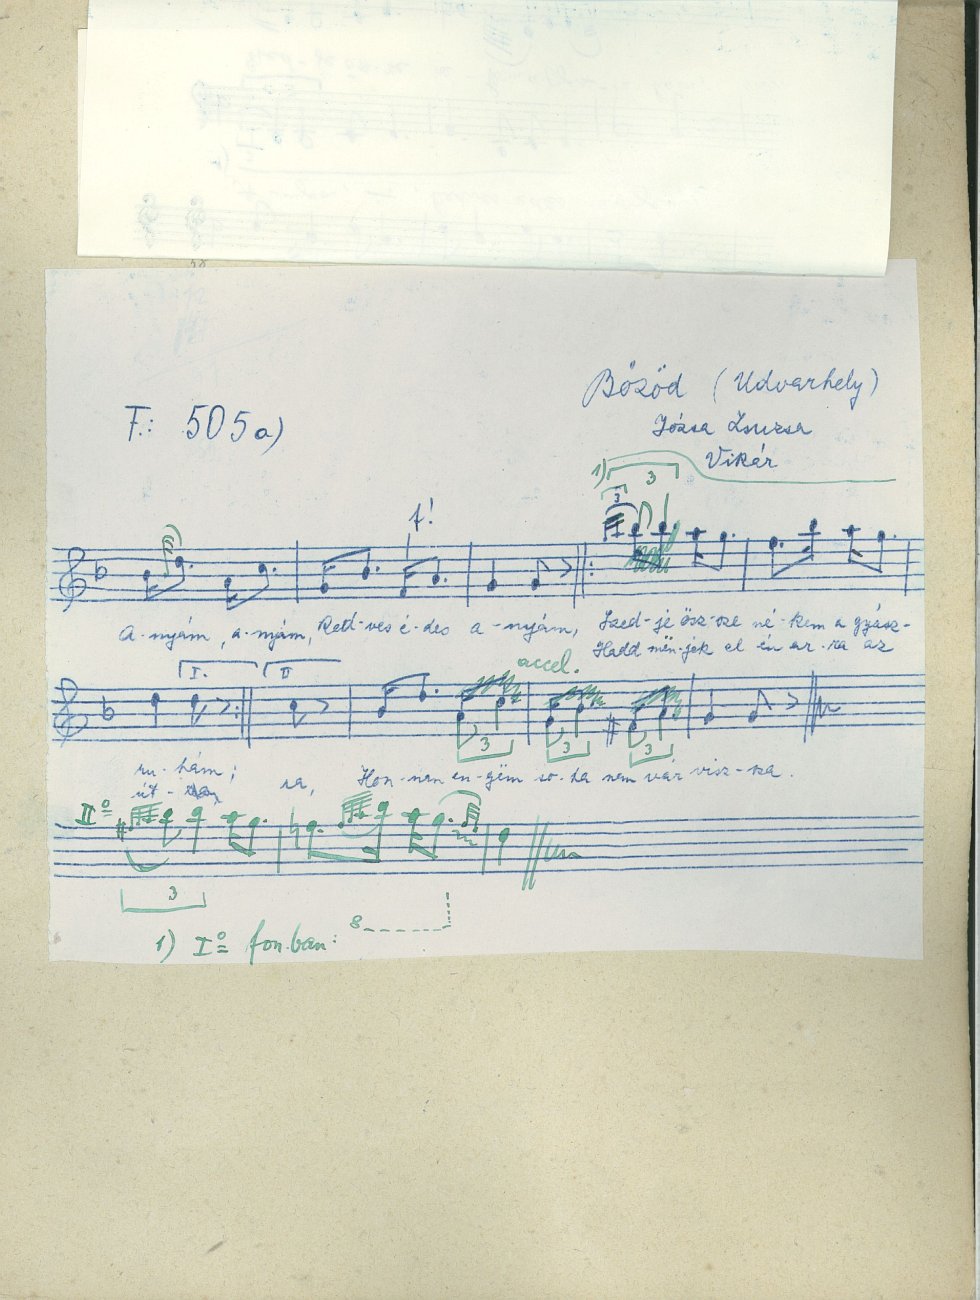 Bözöd (Udvarhely)
F.: 505a)
Józsa Zsuzsa
Vikár
1) 3
3
f!
A-nyám, a-nyám, Ked-ves é-des a-nyám, Szed-jé ösz-sze né-kem a gyász-
Hadd mën-jek el én ar-ra az
accel.
I. II
3 3 3
ru-hám; ra, Hon-nan en-gëm so-ha nem vár visz-sza.
út-
IIº
3
8
1) Iº fon.ban: